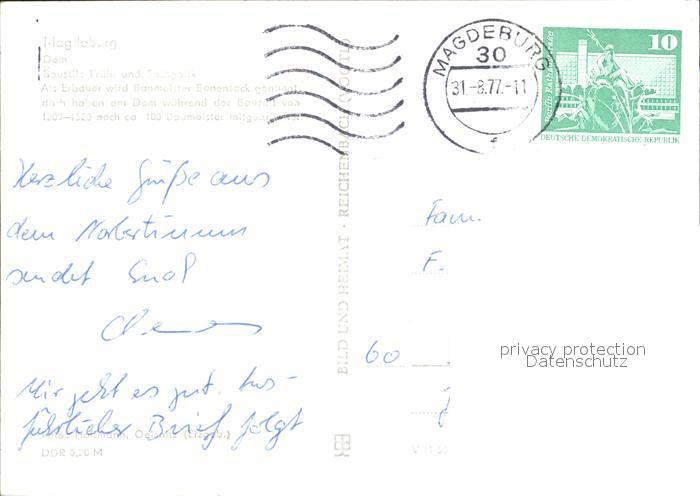 Magdeburg
Dom
Baustil: Früh- und Spätgotik
Als Erbauer wird Baumeister Bonensack genannt,
doch haben am Dom während der Bauzeit von
1209-1520 noch ca. 100 Baumeister mitgewirkt
Herzliche Grüße aus
dem Norbertinum
sendet Euch
Clemens
Mir geht es gut. Aus-
führlicher Brief folgt
DDR 0,20 M
BILD UND HEIMAT · REICHENBACH (VOGTL)
MAGDEBURG
30
31.-8.77.-11
f
10
DEUTSCHE DEMOKRATISCHE REPUBLIK
Fam.
F.
60
privacy protection
Datenschutz